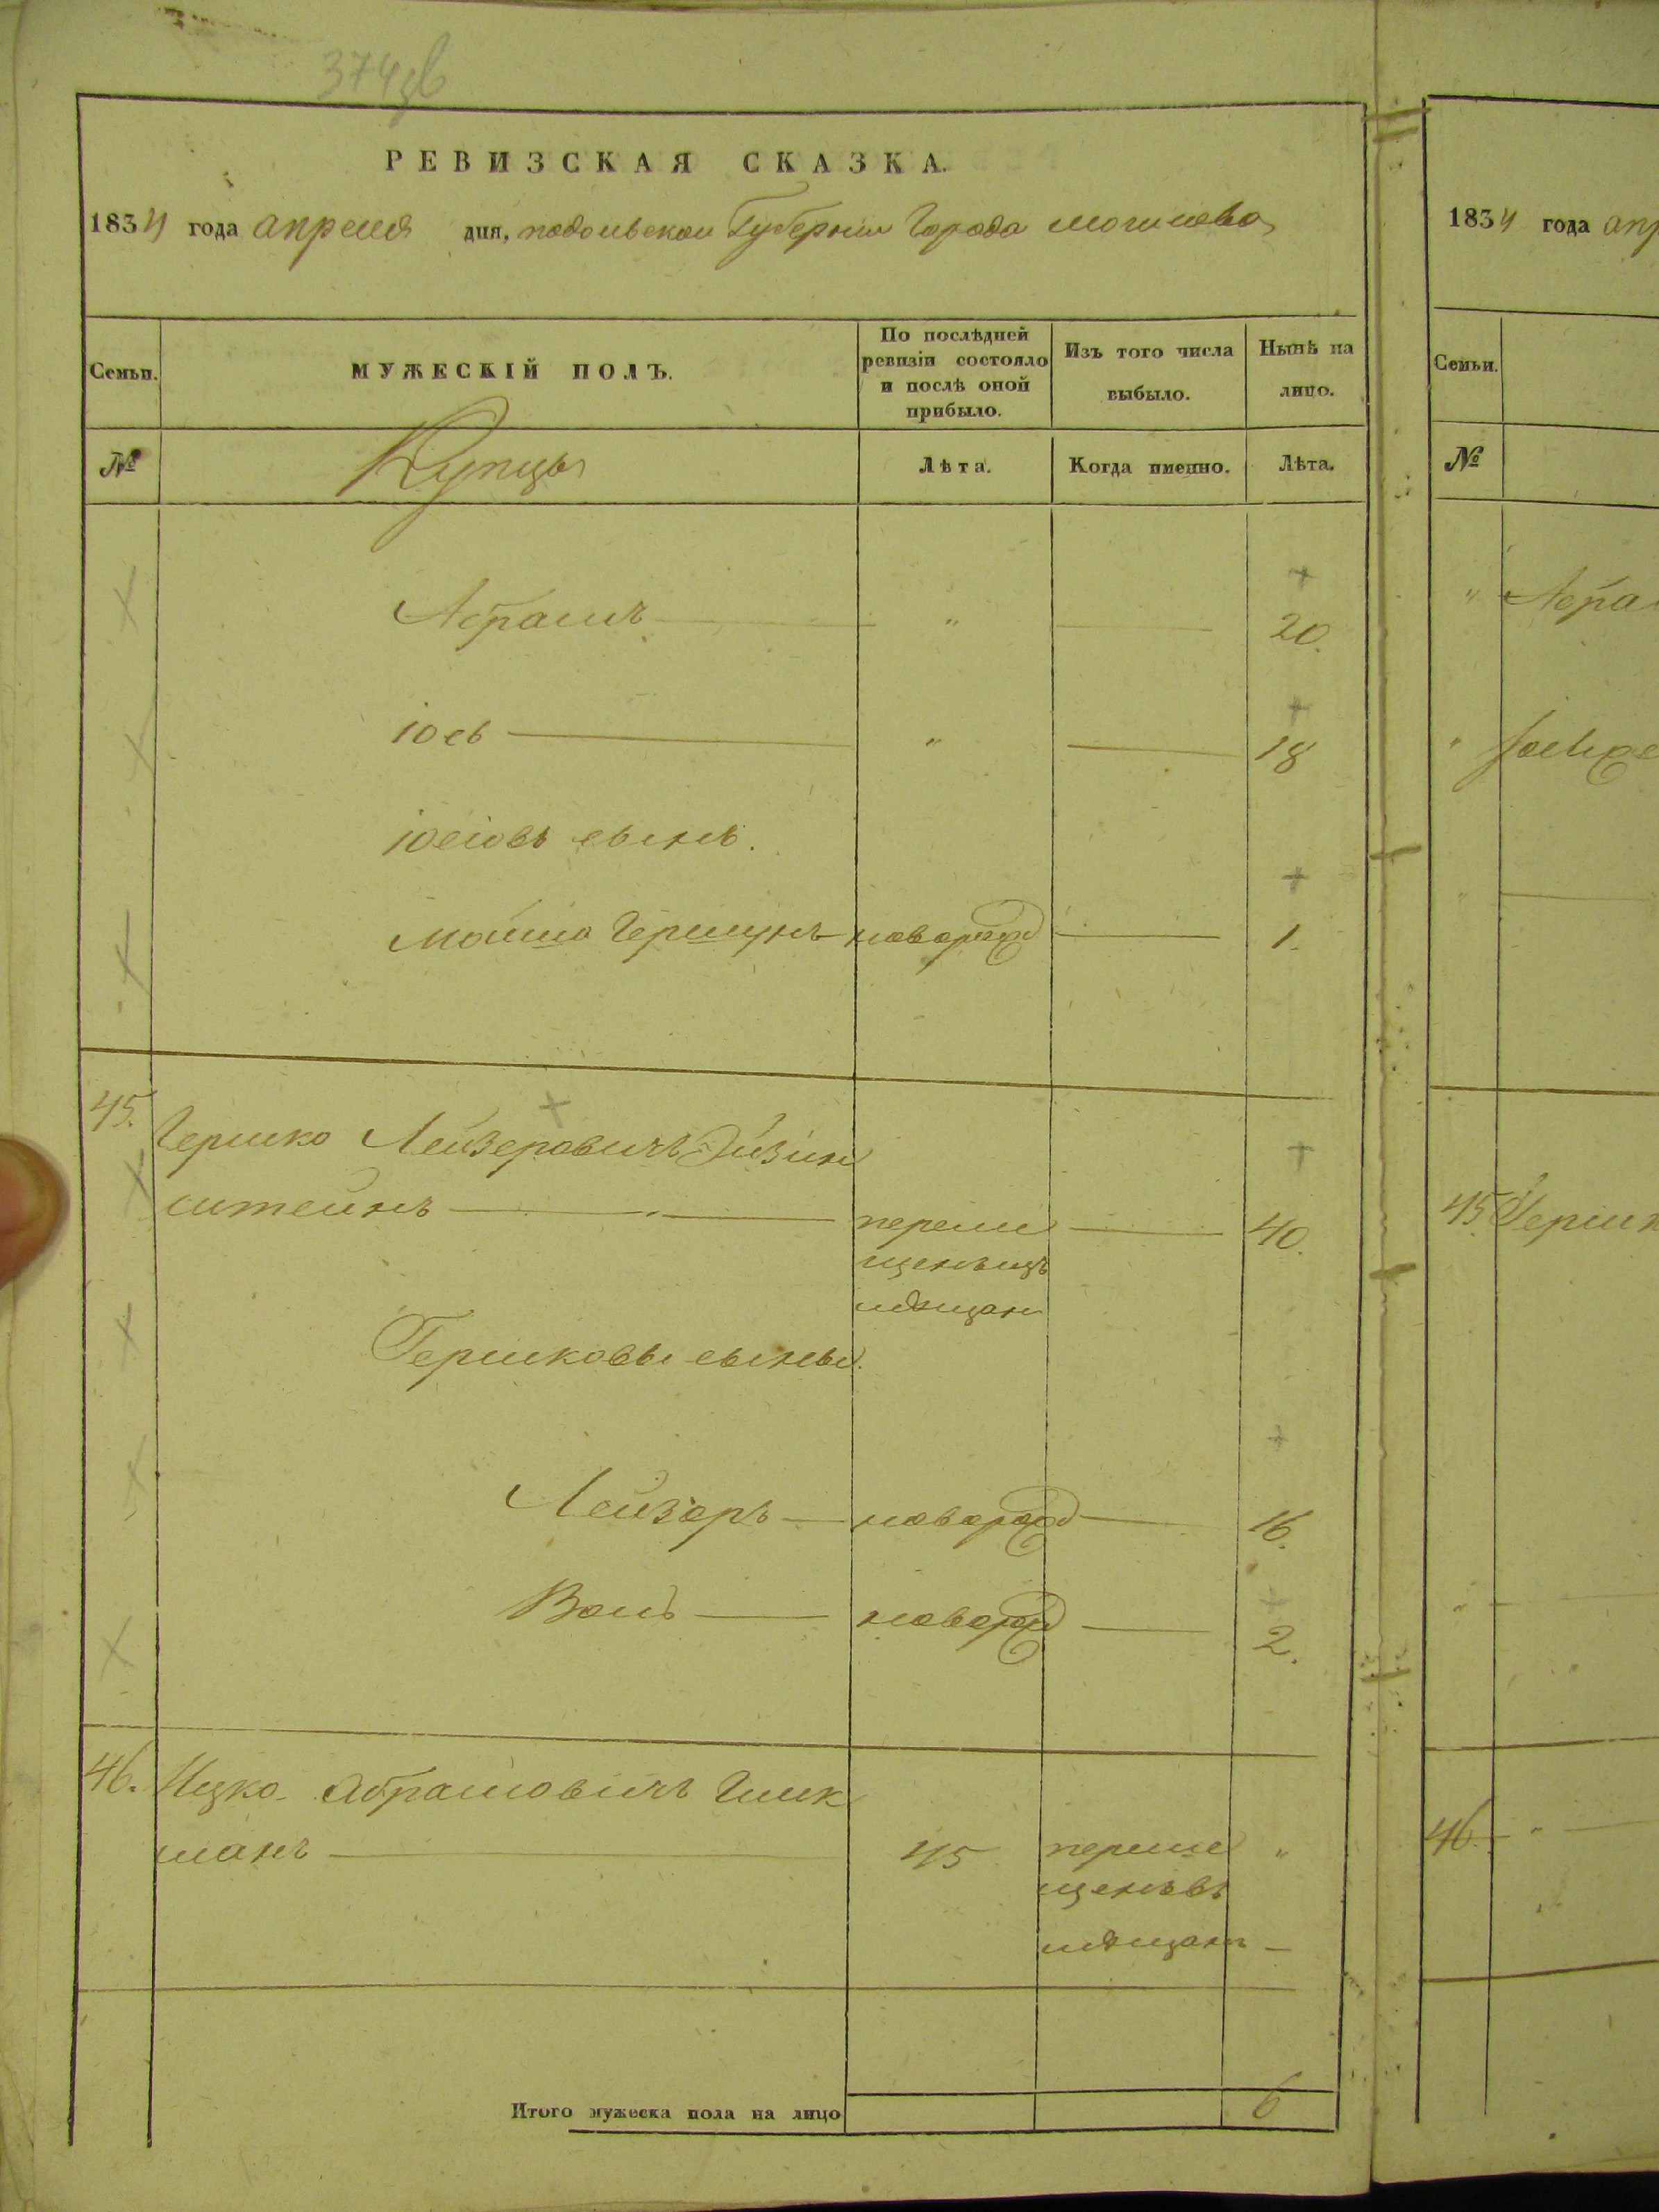 374об
РЕВИЗСКАЯ СКАЗКА.
1834 года апреля дня, подольской Губернии Города могилева
Семьи. МУЖЕСКІЙ ПОЛЪ. По послѣдней ревизіи состояло и послѣ оной прибыло. Изъ того числа выбыло. Нынѣ на лицо.
№ Купцы Лѣта. Когда именно. Лѣта.
Абрамъ " 20.
іось " 18
іосіовъ сынъ.
Мошко Гершунъ новорожд 1.
45. Гершко Лейзеровичъ Эйзин
штейнъ переме 40.
щенъизъ
мѣщан
Гершковы сыновя.
Лейзоръ новорожд 16.
Волъ новорожд 2.
46. Ицко Абрамовичъ Глик
манъ 45 переме "
щенъвъ
мѣщанъ
Итого мужеска пола на лицо 6
1834 года апр
Семьи.
№
" Абра
"
"
45 Гершк
"
46. "